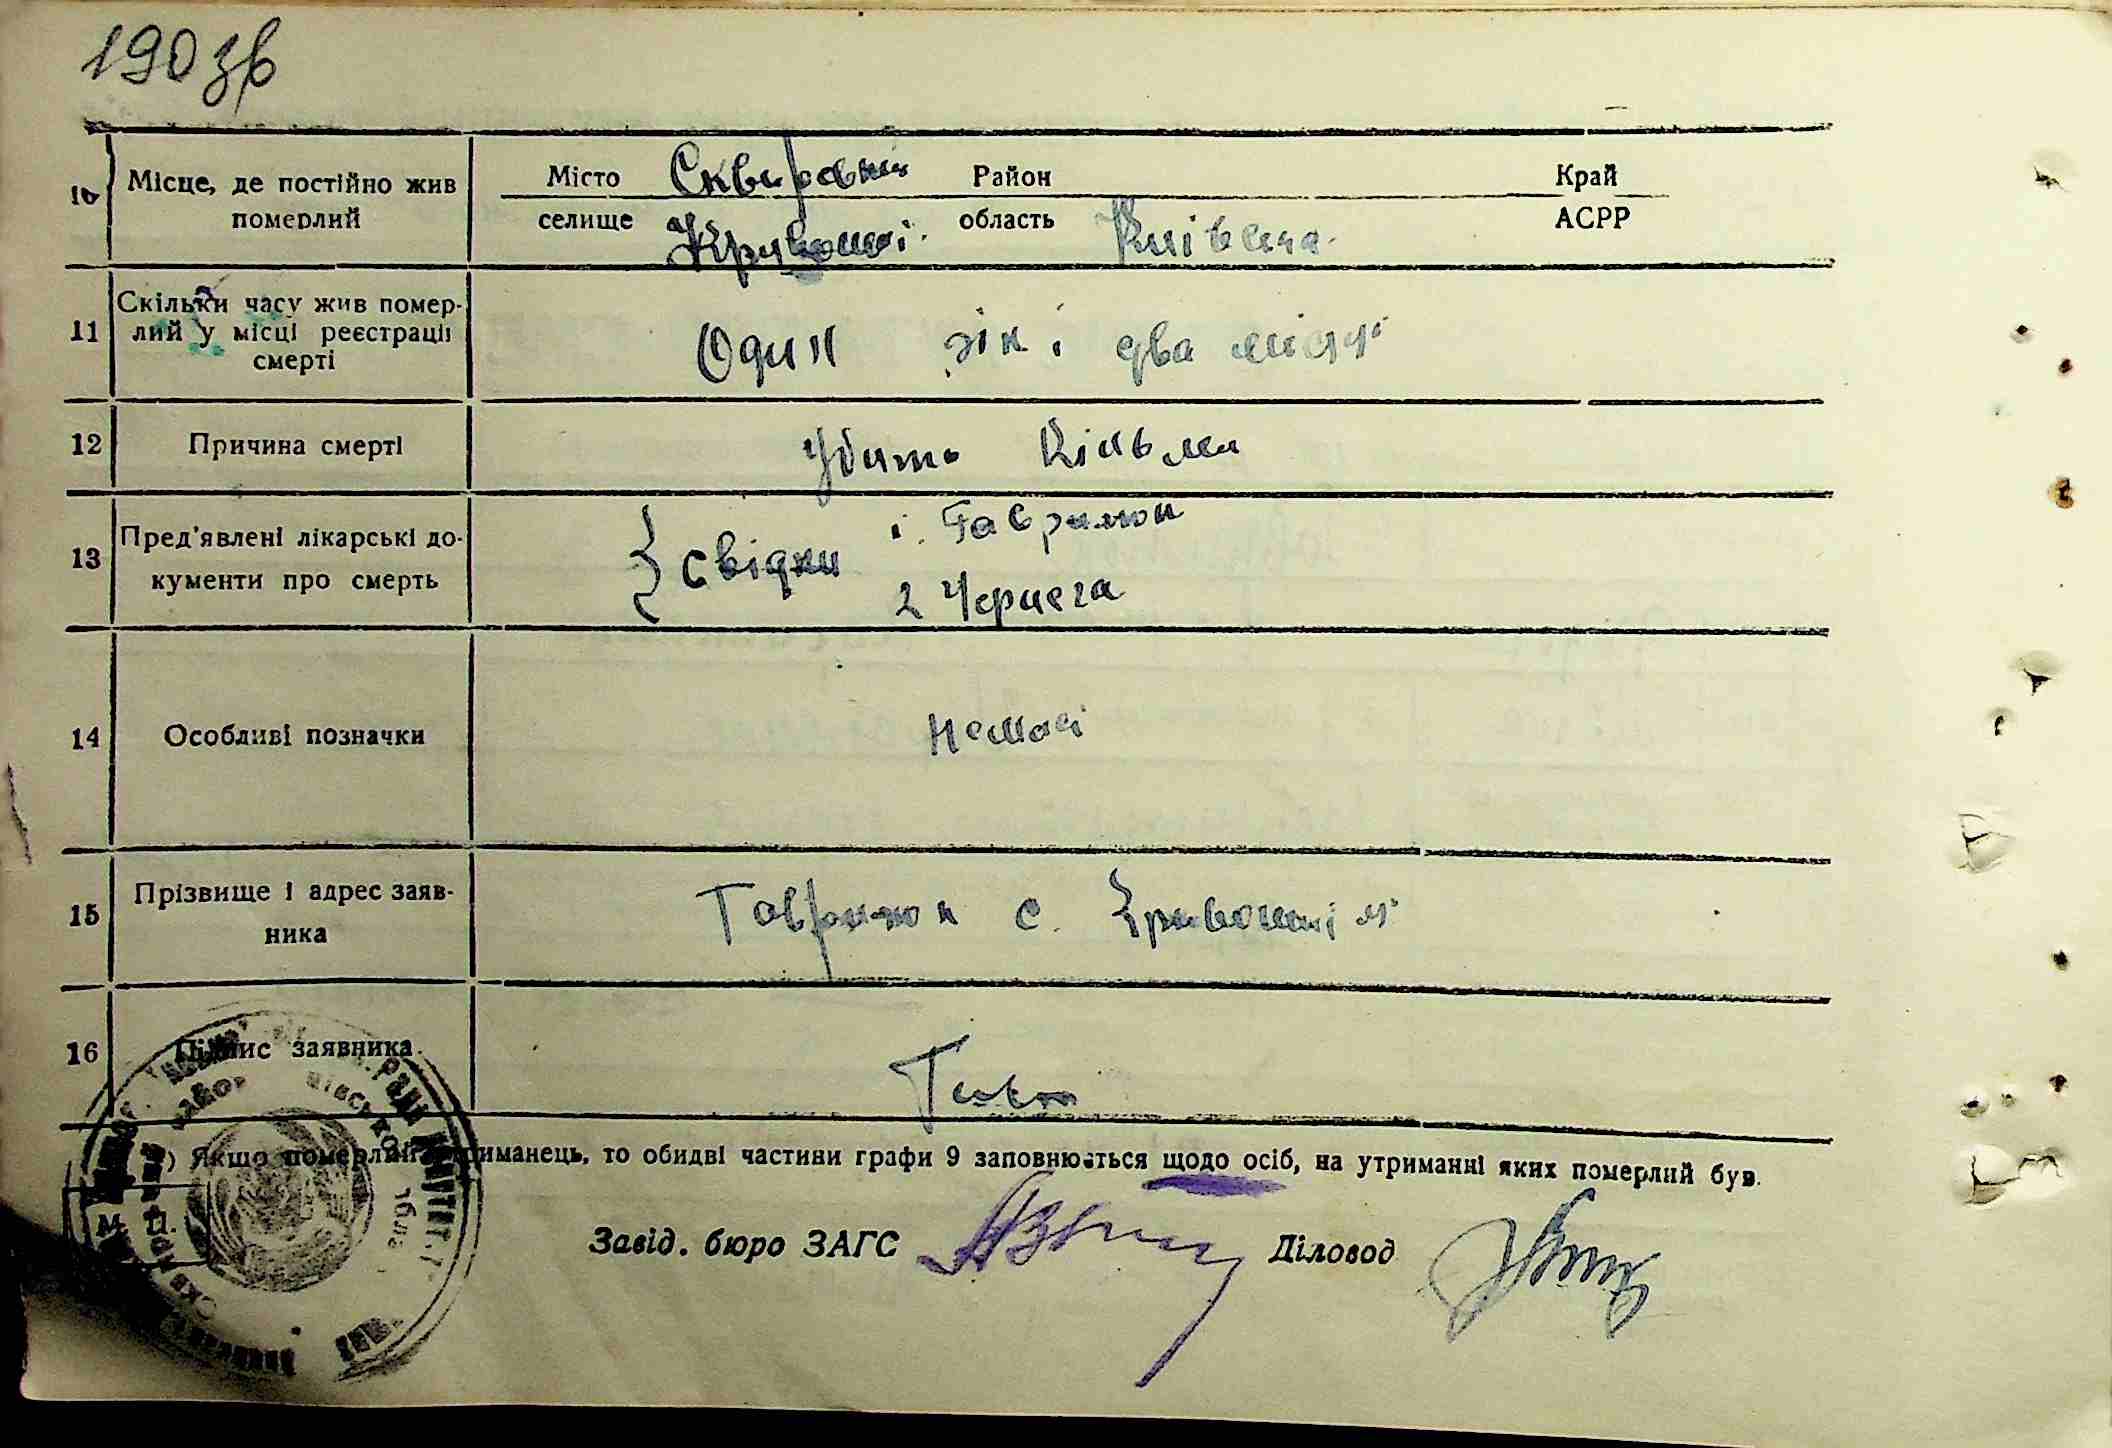 190 зв
10 Місце, де постійно жив померлий
Місто Сквирський Район Край
селище Кривошиї. область Київська. АСРР
11 Скільки часу жив помер-
лий у місці реєстрації
смерті
Один рік і два місяці
12 Причина смерті
Убито
13 Пред'явлені лікарські до-
кументи про смерть
свідки
1. Гаврилюк
2 Чернега
14 Особливі позначки
Немає
15 Прізвище і адрес заяв-
ника
Гаврилюк с.
16 Підпис заявника.
) Якщо померлий утриманець, то обидві частини графи 9 заповнюється щодо осіб, на утриманні яких померлий був.
М. П.
Завід. бюро ЗАГС Діловод